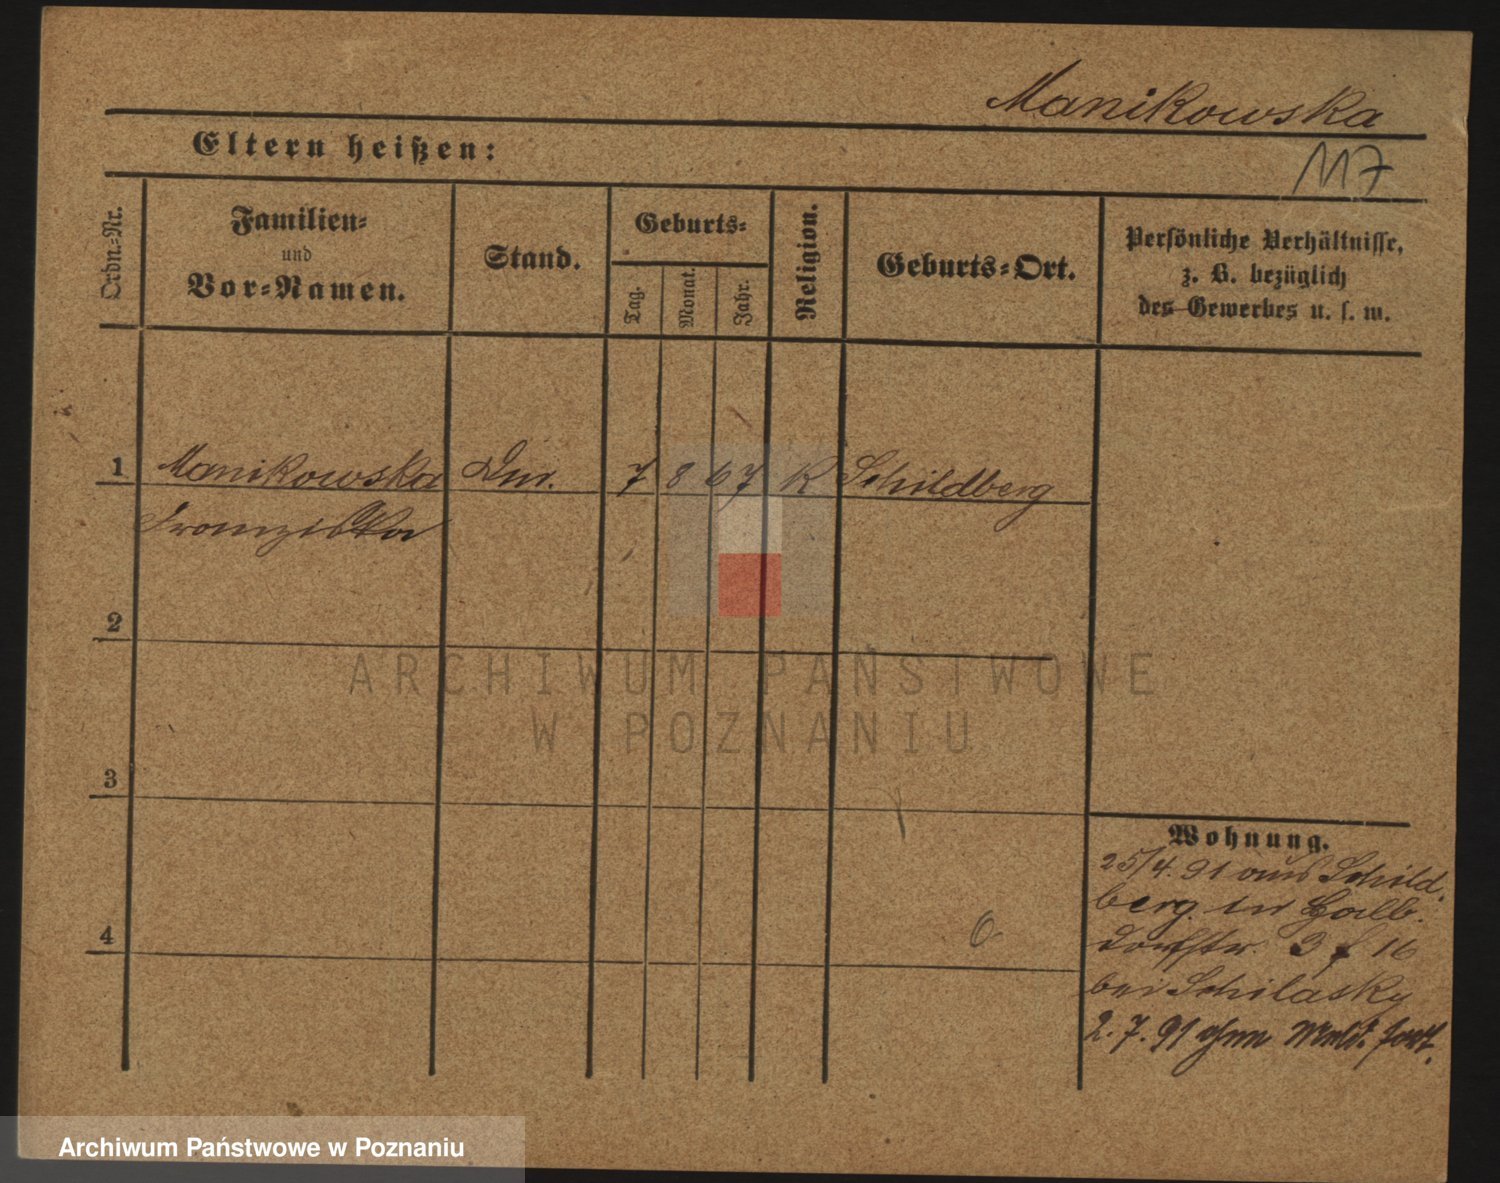 Manikowska
117
Eltern heißen:
Ordn.-Nr.
Familien-
und
Vor-Namen.
Stand.
Geburts-
Tag.
Monat.
Jahr.
Religion.
Geburts-Ort.
Persönliche Verhältnisse,
z. B. bezüglich
des Gewerbes u. s. w.
1 Manikowska 7 8 67 K Schildberg
Franziska
2
ARCHIWUM PAŃSTWOWE
W POZNANIU
3
4
Wohnung.
25/4. 91 aus Schild
berg. in
Dorfstr. 16
bei Schilasky
2. 7. 91 ohne Meld. fort.
Archiwum Państwowe w Poznaniu